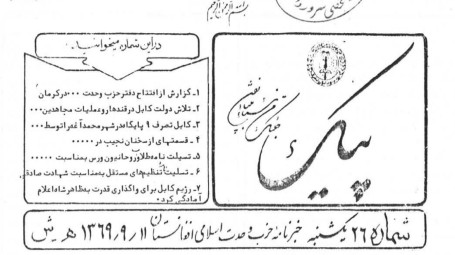 بسم الله الرحمن الرحیم
در این شماره میخوانید:
۱ـ گزارش از افتتاح دفتر حزب وحدت ۰۰۰ در کرمان
۲ـ تلاش دولت کابل در قندهار و عملیات مجاهدین ۰۰۰
۳ـ کابل تصرف ۹ پایگاه در شهر محمد آغه را توسط ۰۰۰
۴ـ قسمتهای از سخنان نجیب در ۰۰۰۰۰
۵ـ تسلیت نامه طلاب و روحانیون ورس بمناسبت ۰۰۰۰۰
۶ـ تسلیت تنظیم‌های مستقل به مناسبت شهادت صادقی
۷ـ رژیم کابل برای واگذاری قدرت به ظاهر شاه اعلام
آمادگی کرد۰
پیک
شماره ۲۶ یکشنبه خبرنامه حزب وحدت اسلامی افغانستان ۱۱ر۹ر۱۳۶۹ هـ ش